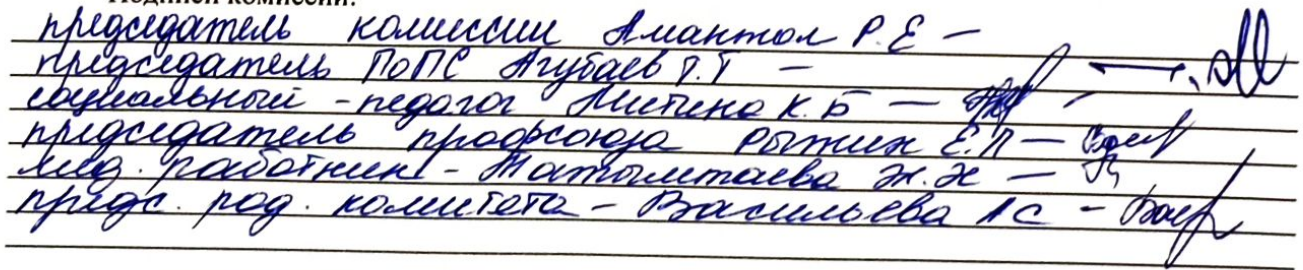 Подписи комиссии:
председатель комиссии Амантол Р.Е –
председатель ПоПС Агубаев Т.Т –
социальный - педагог К.Б –
председатель профсоюза Рыжих Е.П –
мед. работник - Ж.Ж –
предс. род. комитета - Васильева Л С -